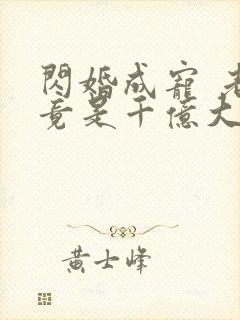 閃婚成寵 老
竟是千億大
黃士峰